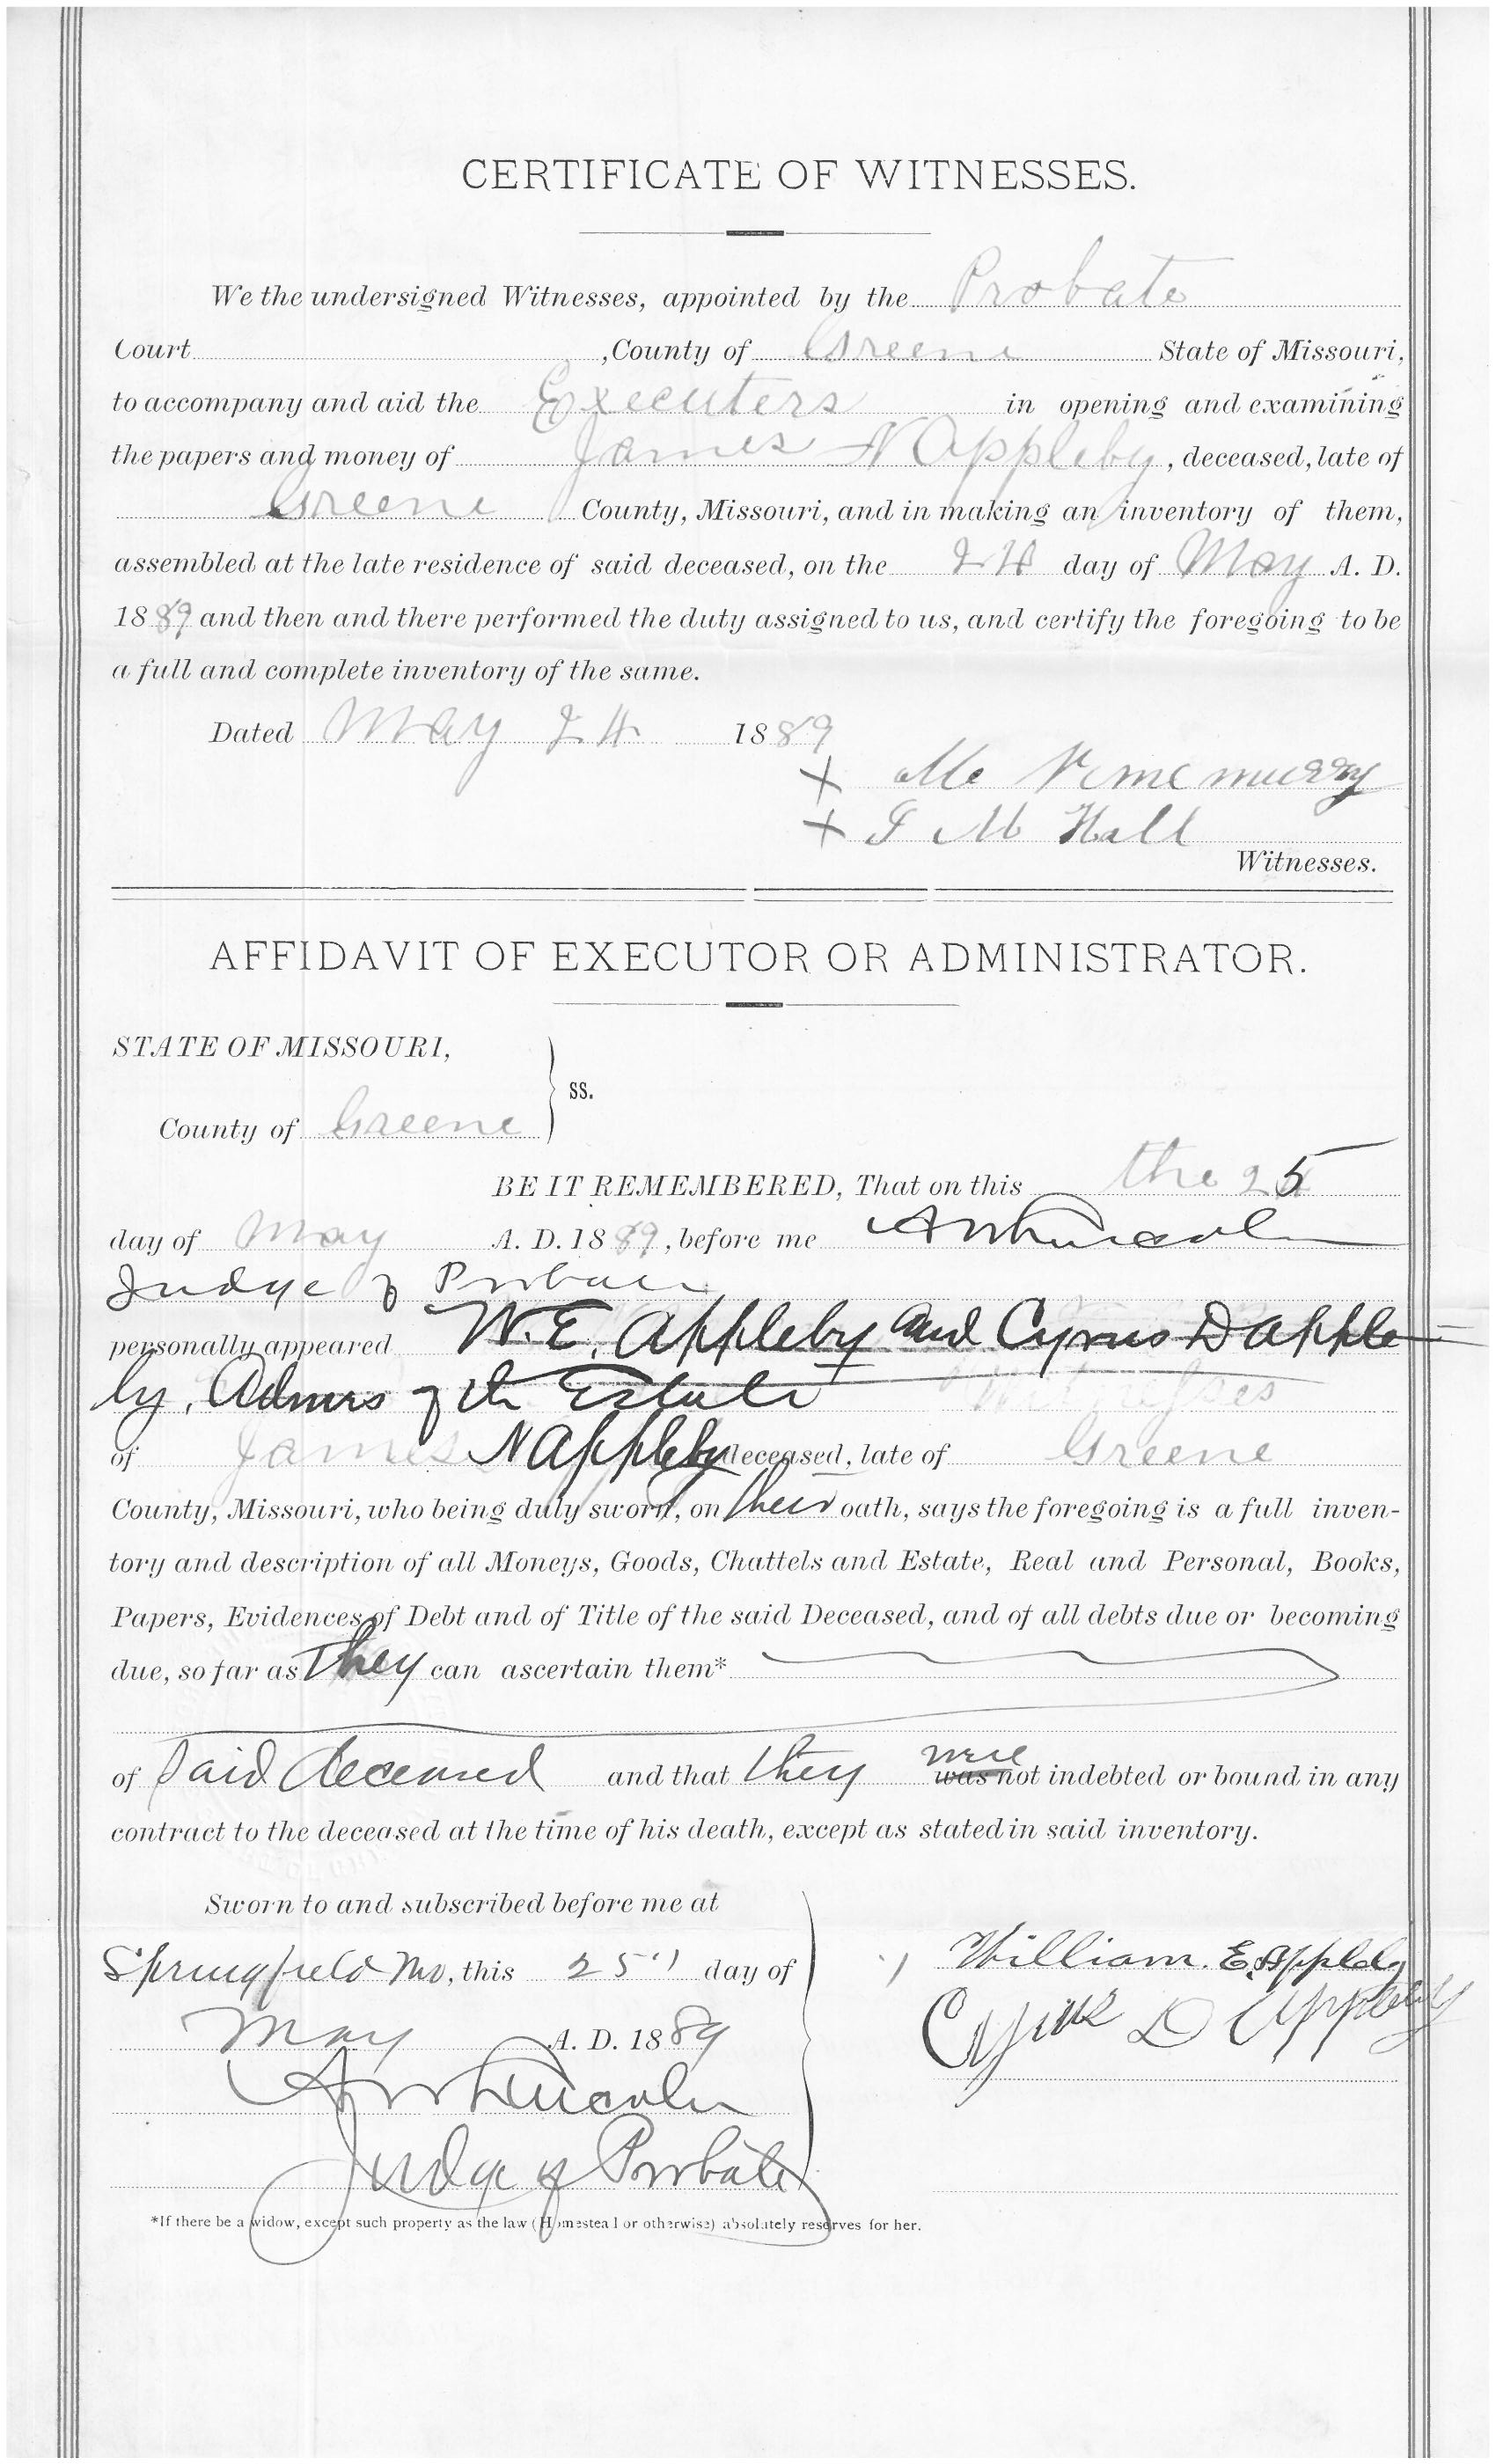 CERTIFICATE OF WITNESSES.
We the undersigned Witnesses, appointed by the Probate
Court , County of Greene State of Missouri,
to accompany and aid the Executers in opening and examining
the papers and money of James N Appleby, deceased, late of
Greene County, Missouri, and in making an inventory of them,
assembled at the late residence of said deceased, on the 24 day of May A. D.
1889 and then and there performed the duty assigned to us, and certify the foregoing to be
a full and complete inventory of the same.
Dated May 24 1889
X mcmurry
X J M Hall
Witnesses.
AFFIDAVIT OF EXECUTOR OR ADMINISTRATOR.
STATE OF MISSOURI,
ss.
County of Greene
BE IT REMEMBERED, That on this the 25
day of May A. D. 1889, before me A W Lincoln
Judge of Probate
personally appeared W. E. Appleby and Cyrus D Apple
by, Admrs of the Estate
of James N Appleby deceased, late of Greene
County, Missouri, who being duly sworn, on their oath, says the foregoing is a full inven-
tory and description of all Moneys, Goods, Chattels and Estate, Real and Personal, Books,
Papers, Evidences of Debt and of Title of the said Deceased, and of all debts due or becoming
due, so far as They can ascertain them*
of said deceased and that they were was not indebted or bound in any
contract to the deceased at the time of his death, except as stated in said inventory.
Sworn to and subscribed before me at
Springfield Mo, this 25" day of
May A. D. 1889
A W Lincoln
Judge of Probate
William. E. Appleby
Cyrus D Appleby
*If there be a widow, except such property as the law (Homestead or otherwise) absolutely reserves for her.